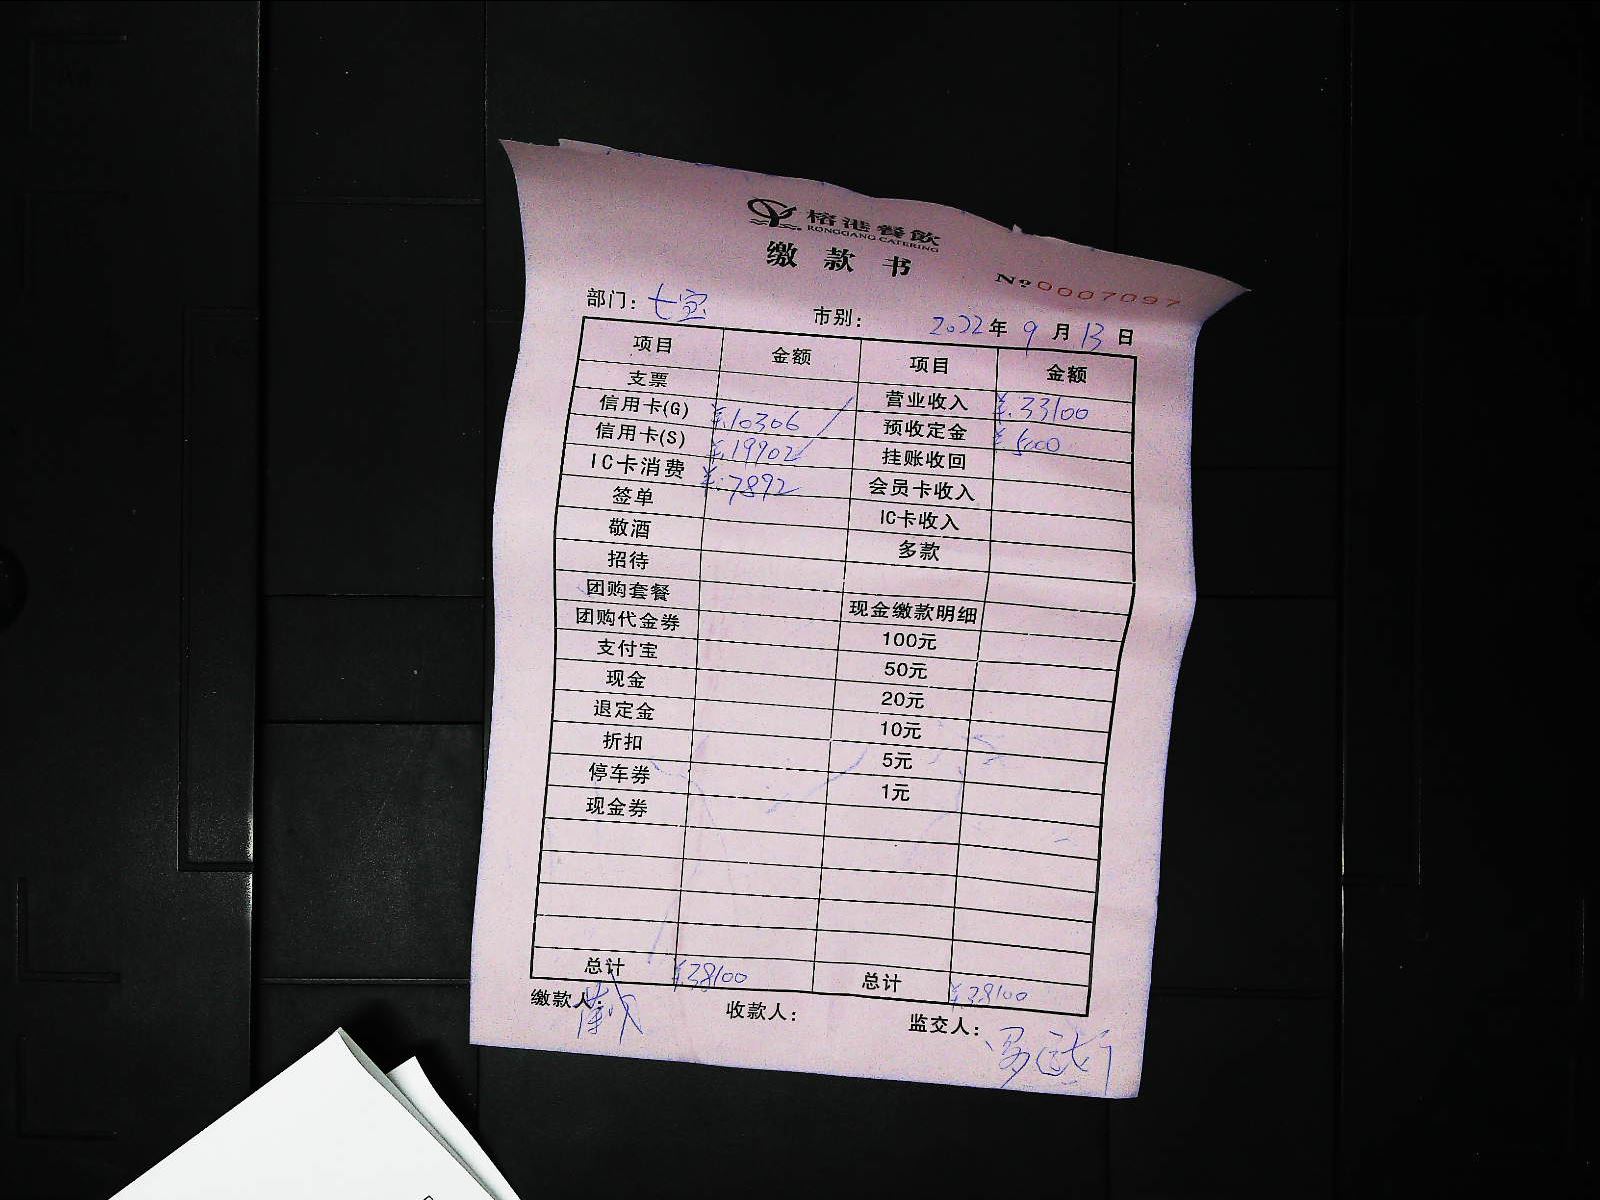 榕港餐飲
RONGGANG CATERING
缴款书
No 0007097
部门：七宝 市别： 2022年9月13日
项目 金额 项目 金额
支票 营业收入 ¥33100
信用卡(G) ¥10306 预收定金 ¥5000
信用卡(S) ¥19902 挂账收回
IC卡消费 ¥7892 会员卡收入
签单 IC卡收入
敬酒 多款
招待
团购套餐 现金缴款明细
团购代金券 100元
支付宝 50元
现金 20元
退定金 10元
折扣 5元
停车券 1元
现金券
总计 ¥38100 总计 ¥38100
缴款人： 收款人： 监交人：